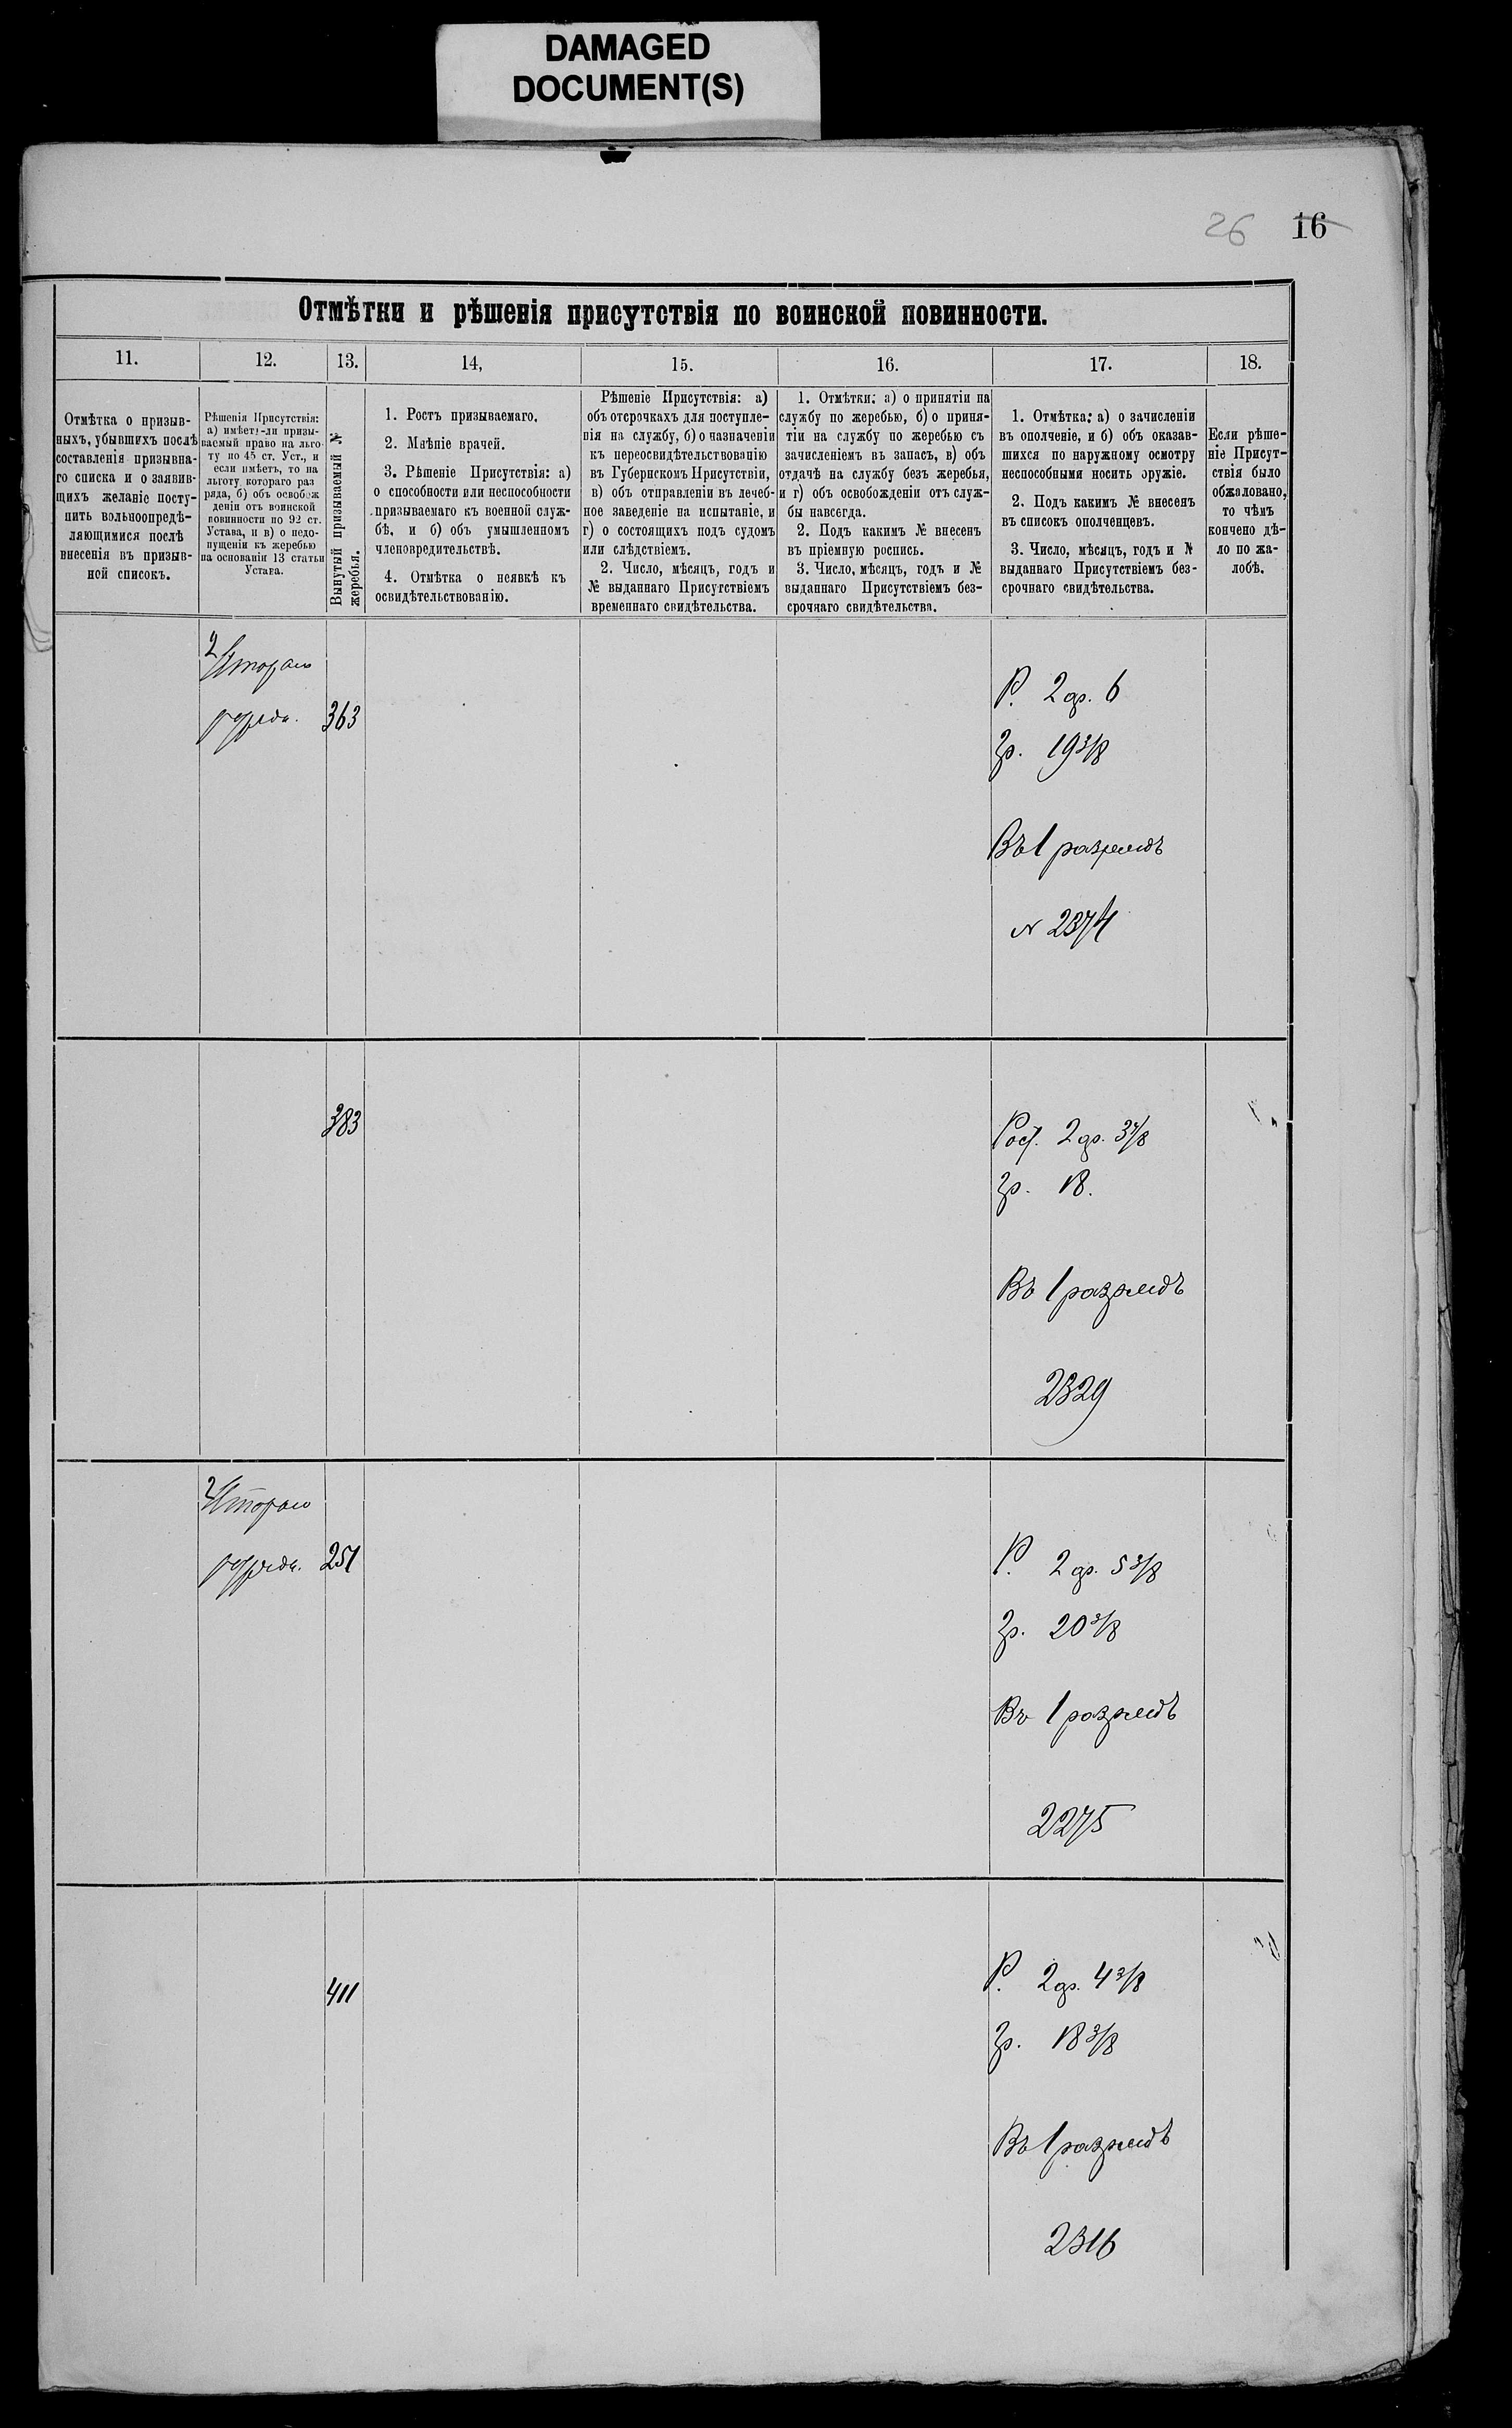 DAMAGED
DOCUMENT(S)
26 16
Отмѣтки и рѣшенія присутствія по воинской повинности.
11. 12. 13. 14, 15. 16. 17. 18.
Отмѣтка о призыв-
ныхъ, убывшихъ послѣ
составленія призывна-
го списка и о заявив-
щихъ желаніе посту-
пить вольноопредѣ-
ляющимися послѣ
внесенія въ призыв-
ной списокъ.
Рѣшенія Присутствія:
а) имѣетъ-ли призы-
ваемый право на льго-
ту по 45 ст. Уст., и
если имѣетъ, то на
льготу котораго раз
ряда, б) объ освобож
деніи отъ воинской
повинности по 92 ст.
Устава, и в) о недо-
пущеніи къ жеребью
на основаніи 13 статьи
Устава.
Вынутый призываемый №
жеребья.
1. Ростъ призываемаго.
2. Мнѣніе врачей.
3. Рѣшеніе Присутствія: а)
о способности или неспособности
призываемаго къ военной служ-
бѣ, и б) объ умышленномъ
членовредительствѣ.
4. Отмѣтка о неявкѣ къ
освидѣтельствованію.
Рѣшеніе Присутствія: а)
объ отсрочкахъ для поступле-
нія на службу, б) о назначеніи
къ переосвидѣтельствованію
въ Губернскомъ Присутствіи,
в) объ отправленіи въ лечеб-
ное заведеніе на испытаніе, и
г) о состоящихъ подъ судомъ
или слѣдствіемъ.
2. Число, мѣсяцъ, годъ и
№ выданнаго Присутствіемъ
временнаго свидѣтельства.
1. Отмѣтки: а) о принятіи на
службу по жеребью, б) о приня-
тіи на службу по жеребью съ
зачисленіемъ въ запасъ, в) объ
отдачѣ на службу безъ жеребья,
и г) объ освобожденіи отъ служ-
бы навсегда.
2. Подъ какимъ № внесенъ
въ пріемную роспись.
3. Число, мѣсяцъ, годъ и №
выданнаго Присутствіемъ без-
срочнаго свидѣтельства.
1. Отмѣтка: а) о зачисленіи
въ ополченіе, и б) объ оказав-
шихся по наружному осмотру
неспособными носить оружіе.
2. Подъ какимъ № внесенъ
въ списокъ ополченцевъ.
3. Число, мѣсяцъ, годъ и №
выданнаго Присутствіемъ без-
срочнаго свидѣтельства.
Если рѣше-
ніе Присут-
ствія было
обжаловано,
то чѣмъ
кончено дѣ-
ло по жа-
лобѣ.
2
Втораго
разряда. 363
Р. 2 ар. 6
Гр. 19 3/8
Въ 1 разрядъ
№ 2374
383
Рост. 2 ар. 3 4/8
Гр. 18.
Въ 1 разрядъ
2329
2
Втораго
разряда. 251
Р. 2 ар. 5 3/8
Гр. 20 3/8
Въ 1 разрядъ
2275
411
Р. 2 ар. 4 3/8
Гр. 18 3/8
Въ 1 разрядъ
2316